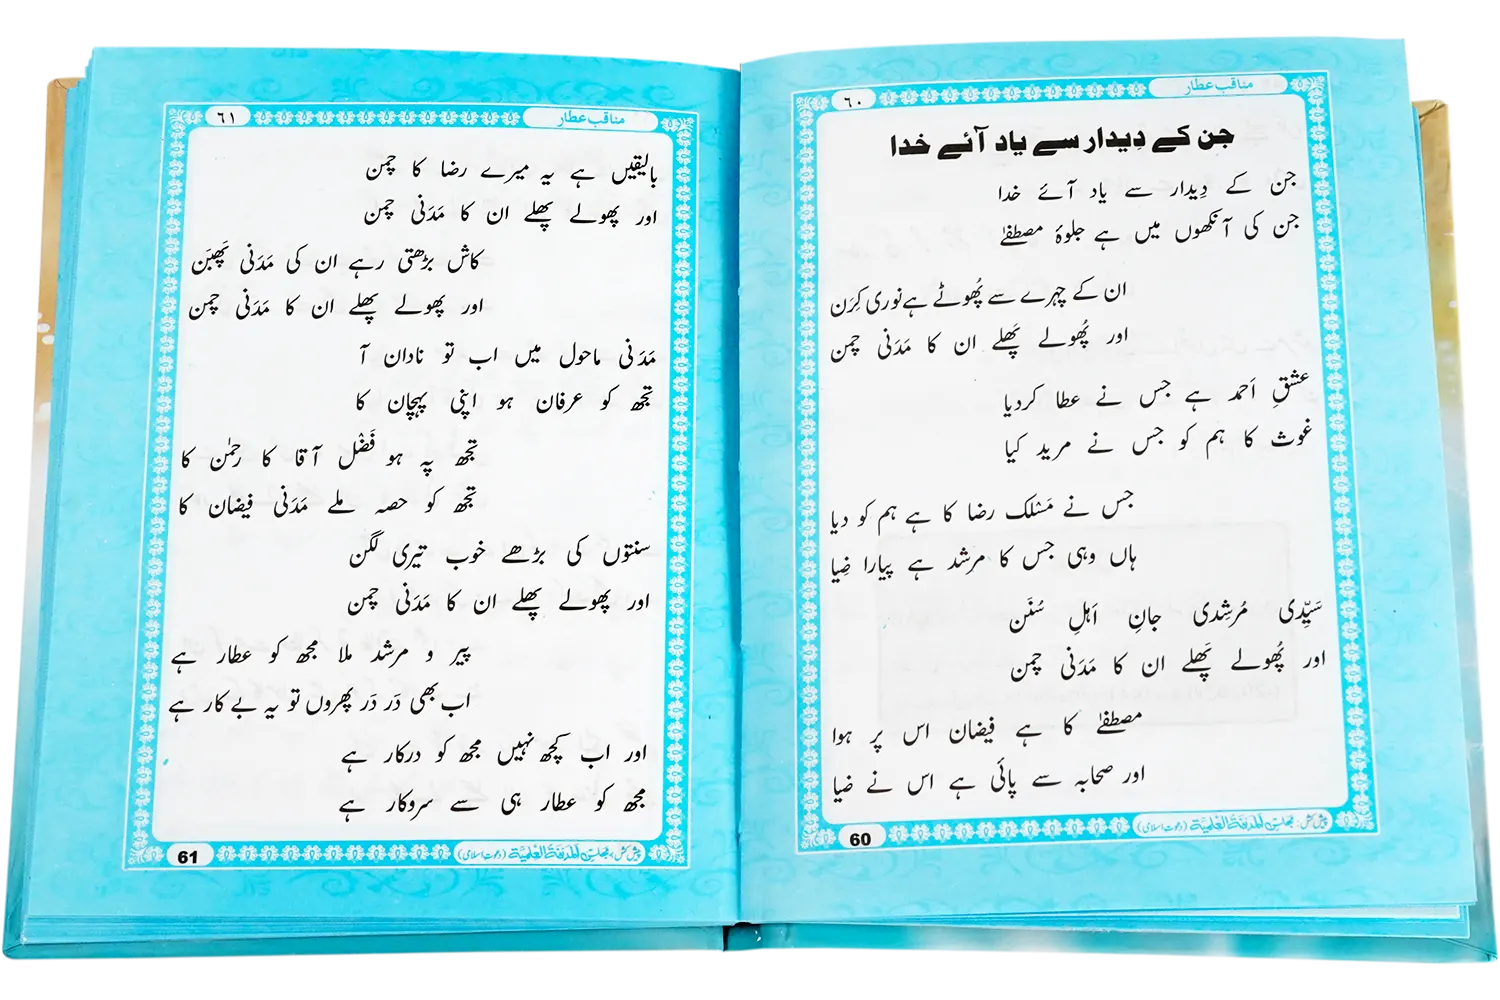 مناقب عطار
٦٠
جن کے دِیدار سے یاد آئے خدا
جن کے دِیدار سے یاد آئے خدا
جن کی آنکھوں میں ہے جلوۂ مصطفےٰ
ان کے چہرے سے پُھوٹے ہے نوری کِرَن
اور پُھولے پَھلے ان کا مَدَنی چمن
عشقِ اَحمد ہے جس نے عطا کردیا
غوث کا ہم کو جس نے مرید کیا
جس نے مَسْلک رضا کا ہے ہم کو دیا
ہاں وہی جس کا مرشد ہے پیارا ضِیا
سَیِّدی مُرشِدی جانِ اَہلِ سُنَن
اور پُھولے پَھلے ان کا مَدَنی چمن
مصطفےٰ کا ہے فیضان اس پر ہوا
اور صحابہ سے پائی ہے اس نے ضیا
پیش کش: مجلس المدینۃ العلمیۃ (دعوت اسلامی)
60
مناقب عطار
٦١
بالیقیں ہے یہ میرے رضا کا چمن
اور پھولے پھلے ان کا مَدَنی چمن
کاش بڑھتی رہے ان کی مَدَنی پَھبَن
اور پھولے پھلے ان کا مَدَنی چمن
مَدَنی ماحول میں اب تو نادان آ
تجھ کو عرفان ہو اپنی پہچان کا
تجھ پہ ہو فَضْل آقا کا رحمٰن کا
تجھ کو حصہ ملے مَدَنی فیضان کا
سنتوں کی بڑھے خوب تیری لگن
اور پھولے پھلے ان کا مَدَنی چمن
پیر و مرشد ملا مجھ کو عطار ہے
اب بھی دَر دَر پھروں تو یہ بے کار ہے
اور اب کچھ نہیں مجھ کو درکار ہے
مجھ کو عطار ہی سے سروکار ہے
پیش کش: مجلس المدینۃ العلمیۃ (دعوت اسلامی)
61